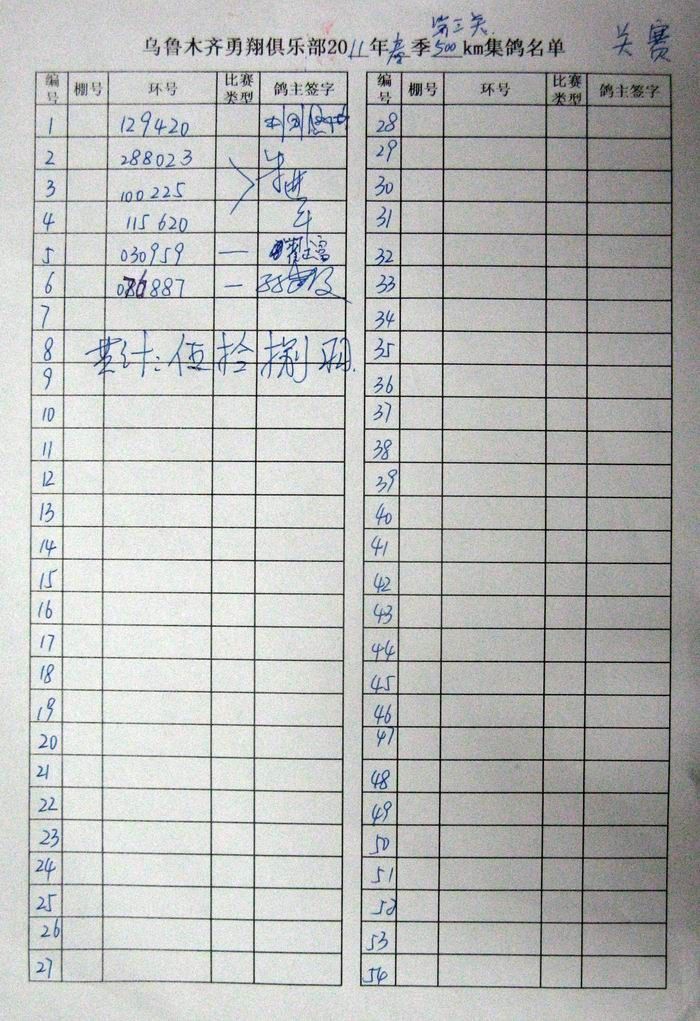 第三关
乌鲁木齐勇翔俱乐部2011年春季500km集鸽名单
关赛
编号 棚号 环号 比赛类型 鸽主签字
1 129420
2 288023
3 100225
4 115620
5 030959 —
6 887 —
7
8 累计:伍拾捌羽.
9
10
11
12
13
14
15
16
17
18
19
20
21
22
23
24
25
26
27
编号 棚号 环号 比赛类型 鸽主签字
28
29
30
31
32
33
34
35
36
37
38
39
40
41
42
43
44
45
46
47
48
49
50
51
52
53
54